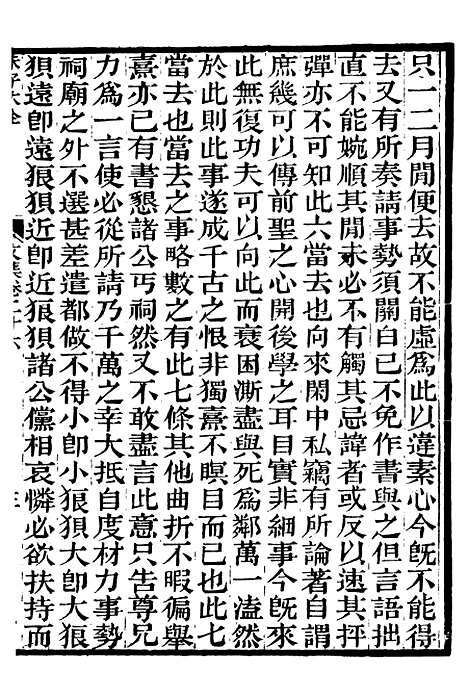 只一二月閒便去故不能虛爲此以違素心今旣不能得
去又有所奏請事勢須關白已不免作書與之但言語拙
直不能婉順其閒未必不有觸其忌諱者或反以速其抨
彈亦不可知此六當去也向來閑中私竊有所論著自謂
庶幾可以傳前聖之心開後學之耳目實非細事今旣來
此無復功夫可以向此而衰困澌盡與死爲鄰萬一溘然
於此則此事遂成千古之恨非獨熹不瞑目而已也此七
當去也當去之事略數之有此七條其他曲折不暇徧舉
熹亦已有書懇諸公丐祠然又不敢盡言此意只告尊兄
力爲一言使必從所請乃千萬之幸大抵自度材力事勢
祠廟之外不選甚差遣都做不得小卽小狼狽大卽大狼
狽遠卽遠狼狽近卽近狼狽諸公儻相哀憐必欲扶持而
朱子大全
文集卷二十六